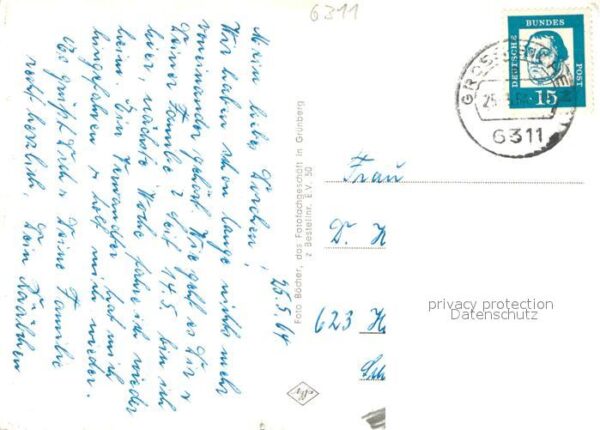 6311
DEUTSCHE BUNDES POST
15
6311
25.5.64
Meine liebe Dorchen!
Wir haben schon lange nichts mehr
voneinander gehört. Wie geht es Dir u
Deiner Familie? Seit 14.5. bin ich
hier, nächste Woche fahre ich wieder
heim. Ein Verwandter hat mich
hingefahren u holt mich wieder.
Es grüßt Dich u Deine Familie
recht herzlich, Dein Käthchen
Foto Bächer, das Fotofachgeschäft in Grünberg
z Bestellnr. E.V. 50
Frau
D. H
623 H
Sch
privacy protection
Datenschutz